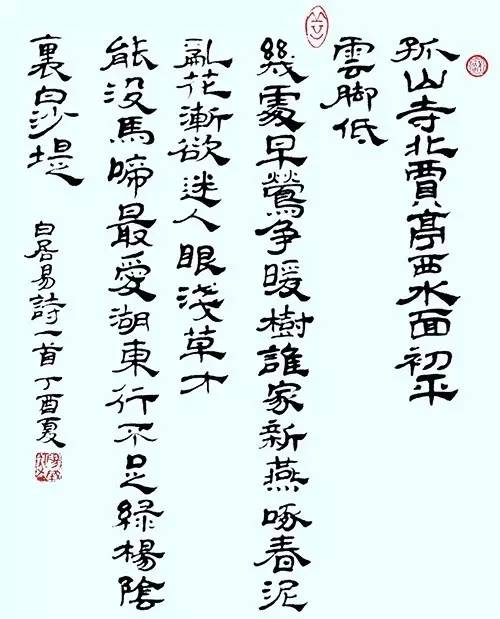 孤山寺北賈亭西水面初平
雲脚低
幾處早鶯争暖樹誰家新燕啄春泥
亂花漸欲迷人眼淺草才
能没馬啼最愛湖東行不足緑楊陰
裏白沙堤
白居易詩一首丁酉夏